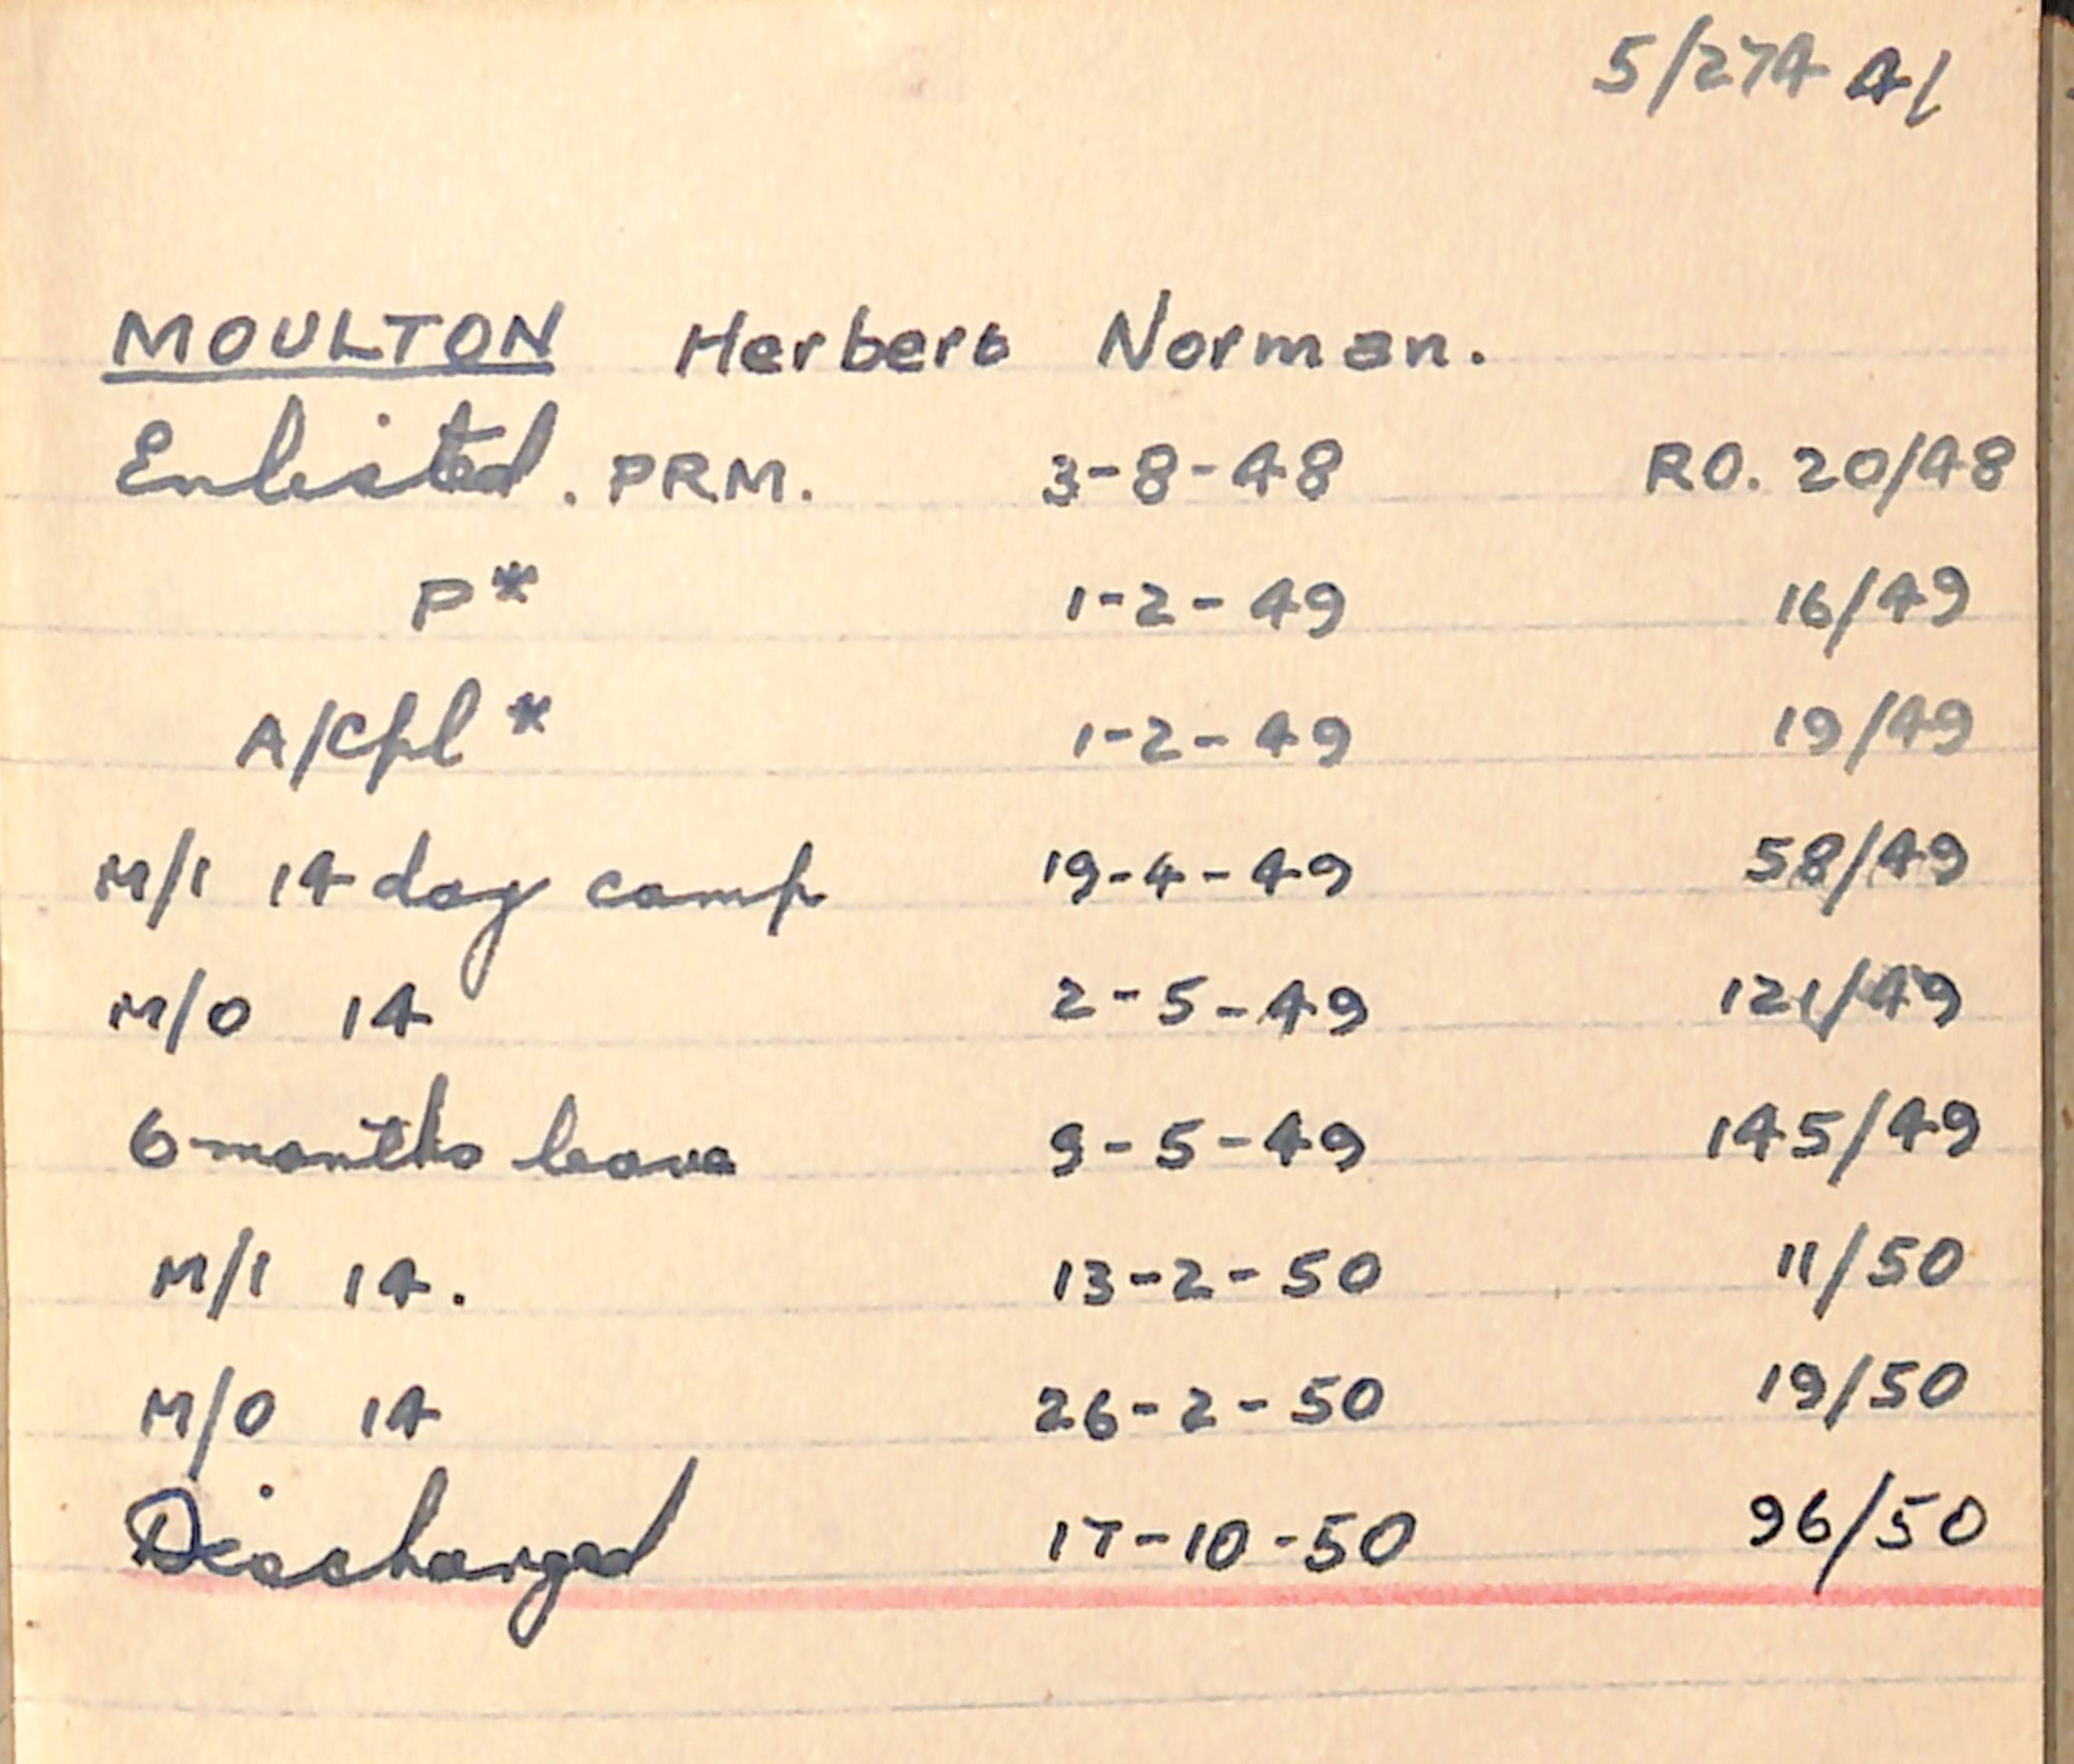 5/274 41
MOULTON Herbert Norman.
Enlisted. PRM. 3-8-48 RO. 20/48
P* 1-2-49 16/49
A/Cpl * 1-2-49 19/49
M/I 14 day camp 19-4-49 58/49
M/O 14 2-5-49 121/49
6 months leave 9-5-49 145/49
M/I 14. 13-2-50 11/50
M/O 14 26-2-50 19/50
Discharged 17-10-50 96/50